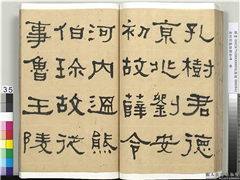 孔樹君德
京兆劉安
初故薛令
河內溫熊
伯珍故從
事魯王陵
35